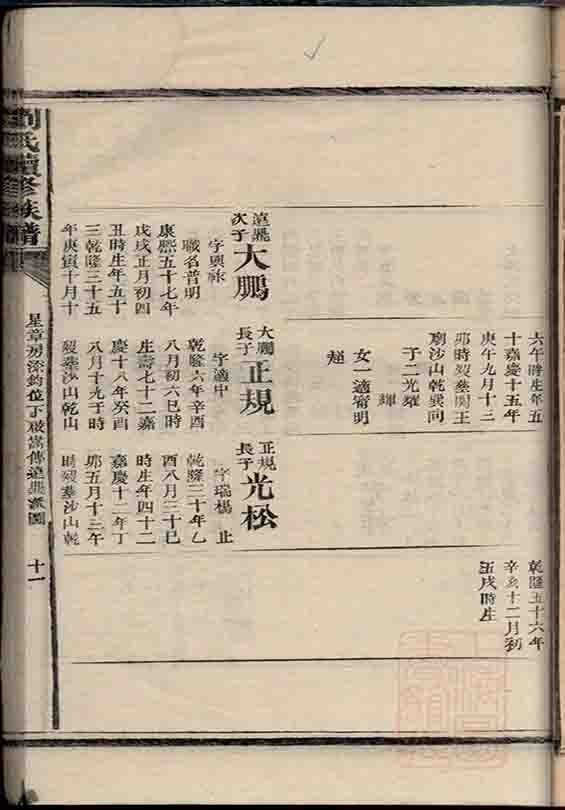 六午時生年五
十嘉慶十五年
庚午九月十三
卯時歿葬閣王
廟沙山乾巽向
子二光耀
輝
女一適甯明
乾隆五十六年
辛亥十二月初
五戌時生
遠鼎
次子
大鵬
字興祿
職名普明
康熙五十七年
戊戌正月初四
丑時生年五十
三乾隆三十五
年庚寅十月十
大鵬
長子
正規
字適中
乾隆六年辛酉
八月初六巳時
生壽七十二嘉
慶十八年癸酉
八月十九子時
歿葬沙山乾山
正規
長子
光松
字瑞楊 止
乾隆三十年乙
酉八月三十巳
時生年四十二
嘉慶十二年丁
卯五月十三午
時歿葬沙山乾
劉氏續修族譜
星章房添鈞位下啟嵩傳遠鼎派圖
十一